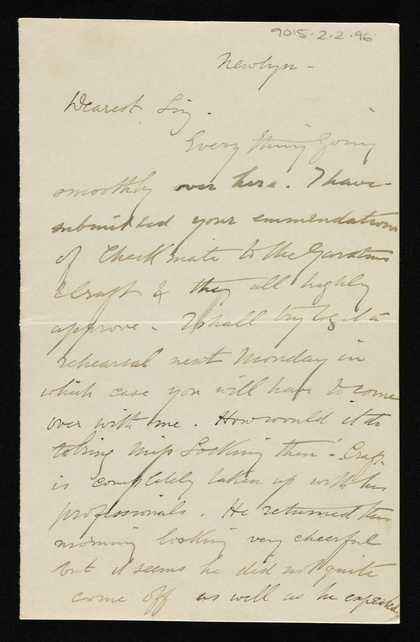 9015.2.2.96
Newlyn -
Dearest Liz.
Every thing going
smoothly over here. I have
submitted your emmendations
of Check mate to the Garstins
& Craft & they all highly
approve - I shall try to get a
rehearsal next Monday in
which case you will have to come
over with me. How would it do
to bring Miss Hocking then? Craft
is completely taken up with his
professionals. He returned this
morning looking very cheerful
but it seems he did not quite
come off as well as he expected